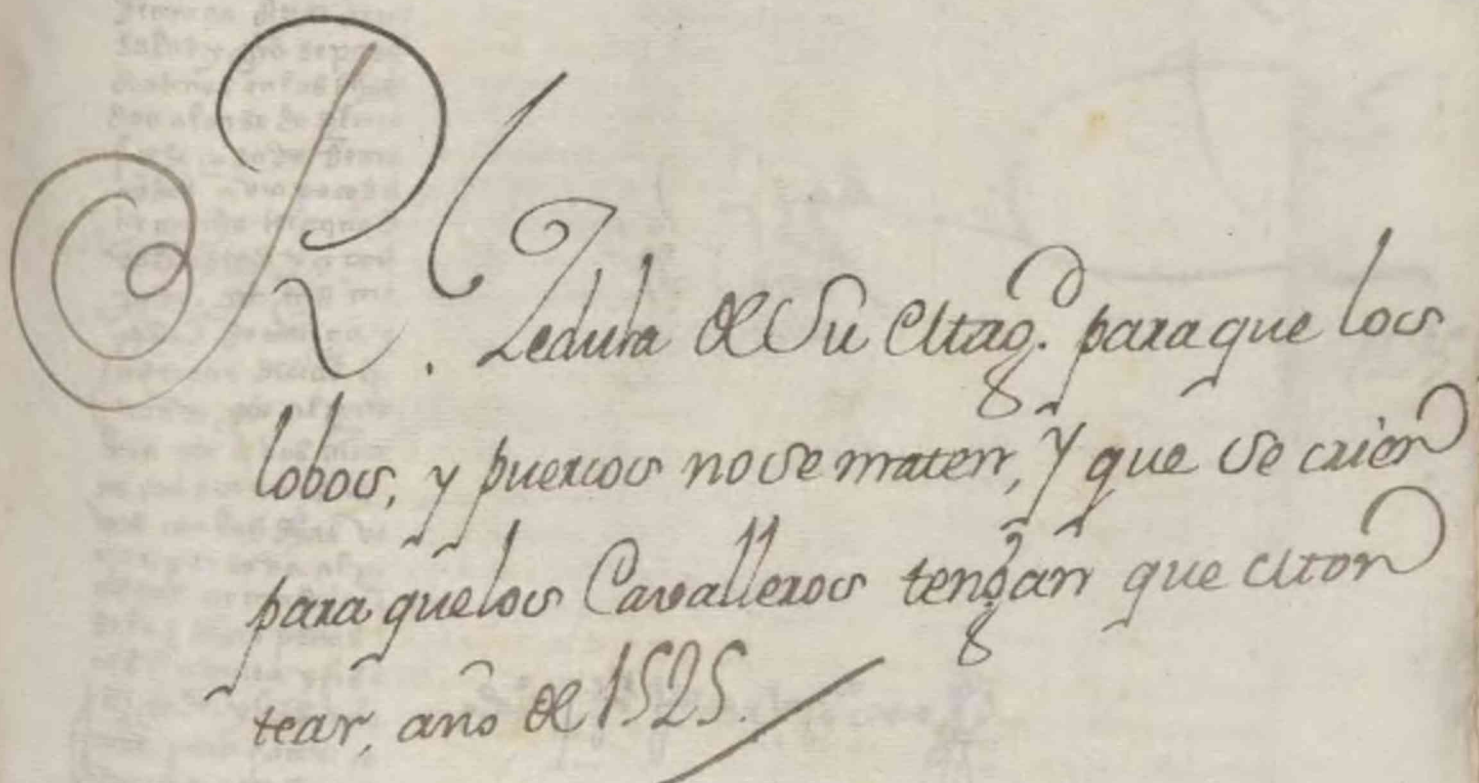 Rl. Zedula de Su Mag. para que los
lobos, y puercos no se maten, y que se crien
para que los Cavalleros tengan que Mon
tear, año de 1525.